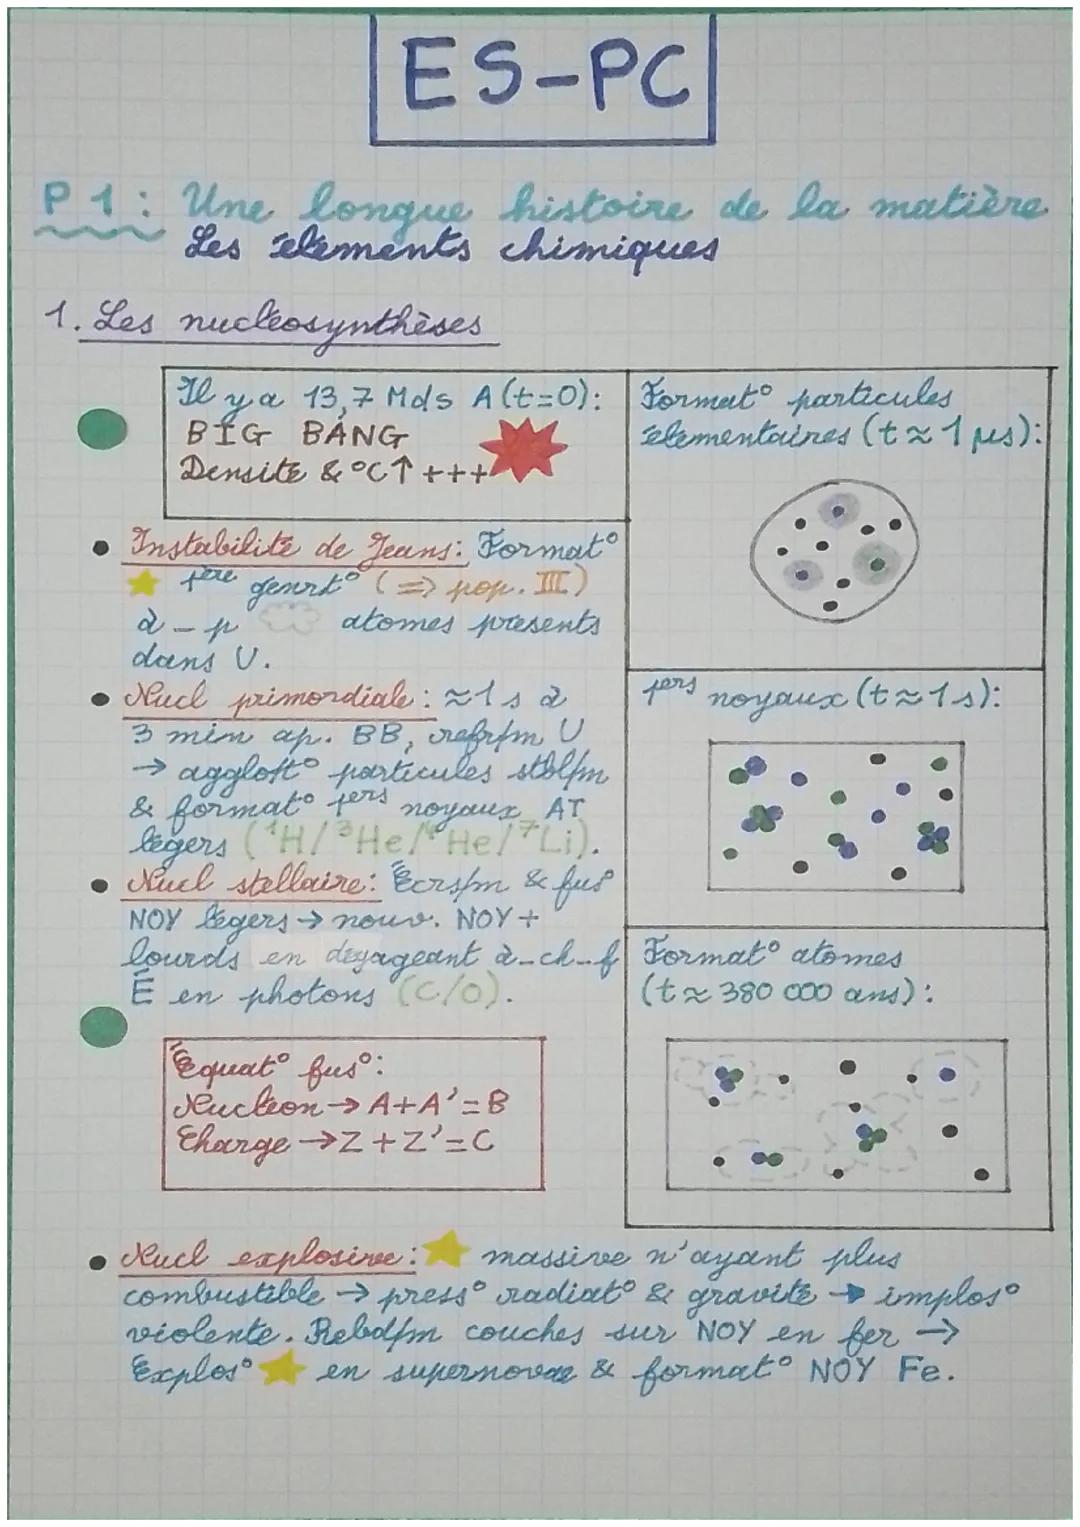 ES-PC
P1: Une longue histoire de la matière
Les éléments chimiques
1. Les nucléosynthèses
Il y a 13,7 Mds A (t=0):
BIG BANG
Densité & °C↑ +++
Format° particules
élémentaires (t≈1 µs):
• Instabilité de Jeans: Format°
1ère genrt° (=> pop. III)
à - p atomes présents
dans U.
• Nucl primordiale: ≈1 s à
3 min ap. BB, refrfm U
→ aggloft° particules stblfm
& format° 1ers noyaux AT
légers (¹H/³He/⁴He/⁷Li).
1ers noyaux (t≈1s):
• Nucl stellaire: Écrsfm & fus°
NOY légers → nouv. NOY +
lourds en dégageant à-ch-f
É en photons (C/O).
Format° atomes
(t≈380 000 ans):
Équat° fus°:
Nucléon → A+A'=B
Charge → Z+Z'=C
• Nucl explosive: massive n'ayant plus
combustible → press° radiat° & gravité → implos°
violente. Rebdfm couches sur NOY en fer →
Explos° en supernovae & format° NOY Fe.